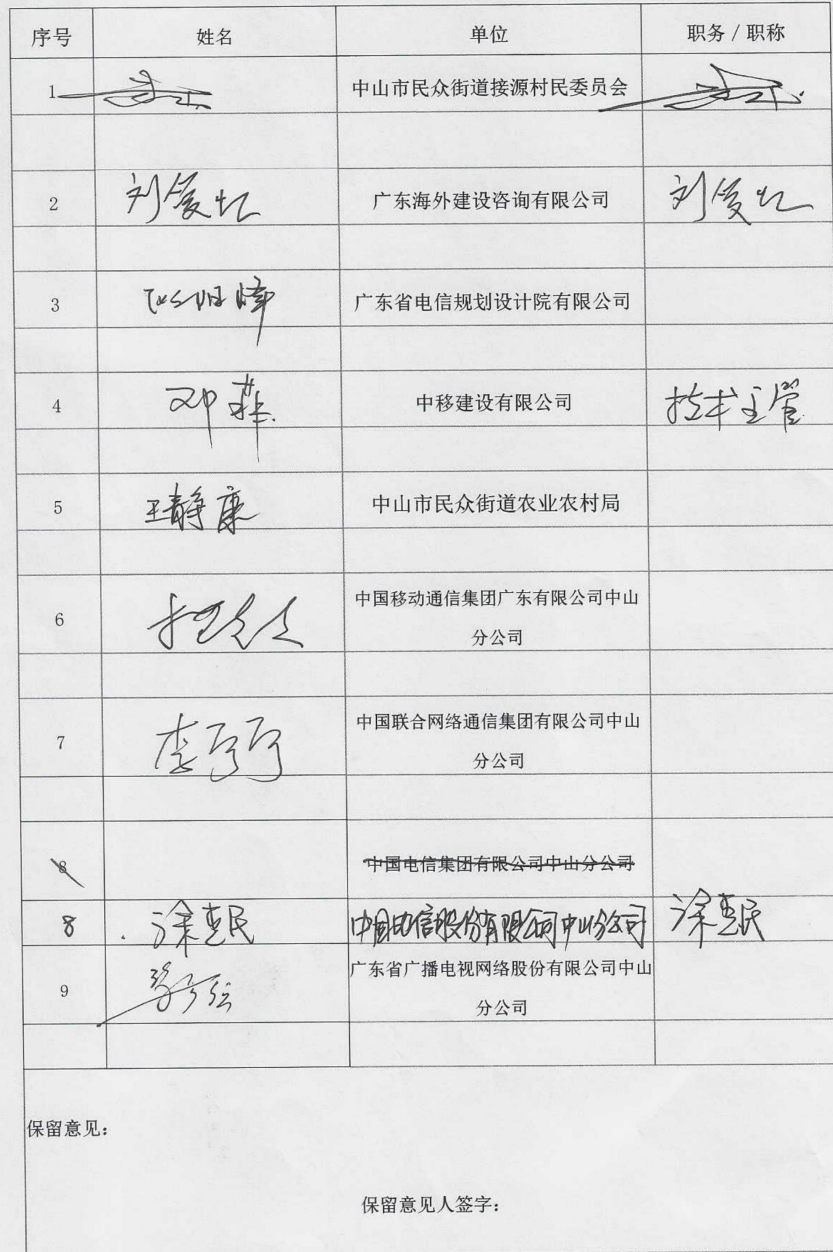 序号 姓名 单位 职务 / 职称
1 中山市民众街道接源村民委员会
2 刘爱忆 广东海外建设咨询有限公司 刘爱忆
3 广东省电信规划设计院有限公司
4 邓燕 中移建设有限公司 技术主管
5 王静康 中山市民众街道农业农村局
6 中国移动通信集团广东有限公司中山
分公司
7 中国联合网络通信集团有限公司中山
分公司
8 中国电信集团有限公司中山分公司
8 涂惠民 中国电信股份有限公司中山分公司 涂惠民
9 广东省广播电视网络股份有限公司中山
分公司
保留意见：
保留意见人签字：